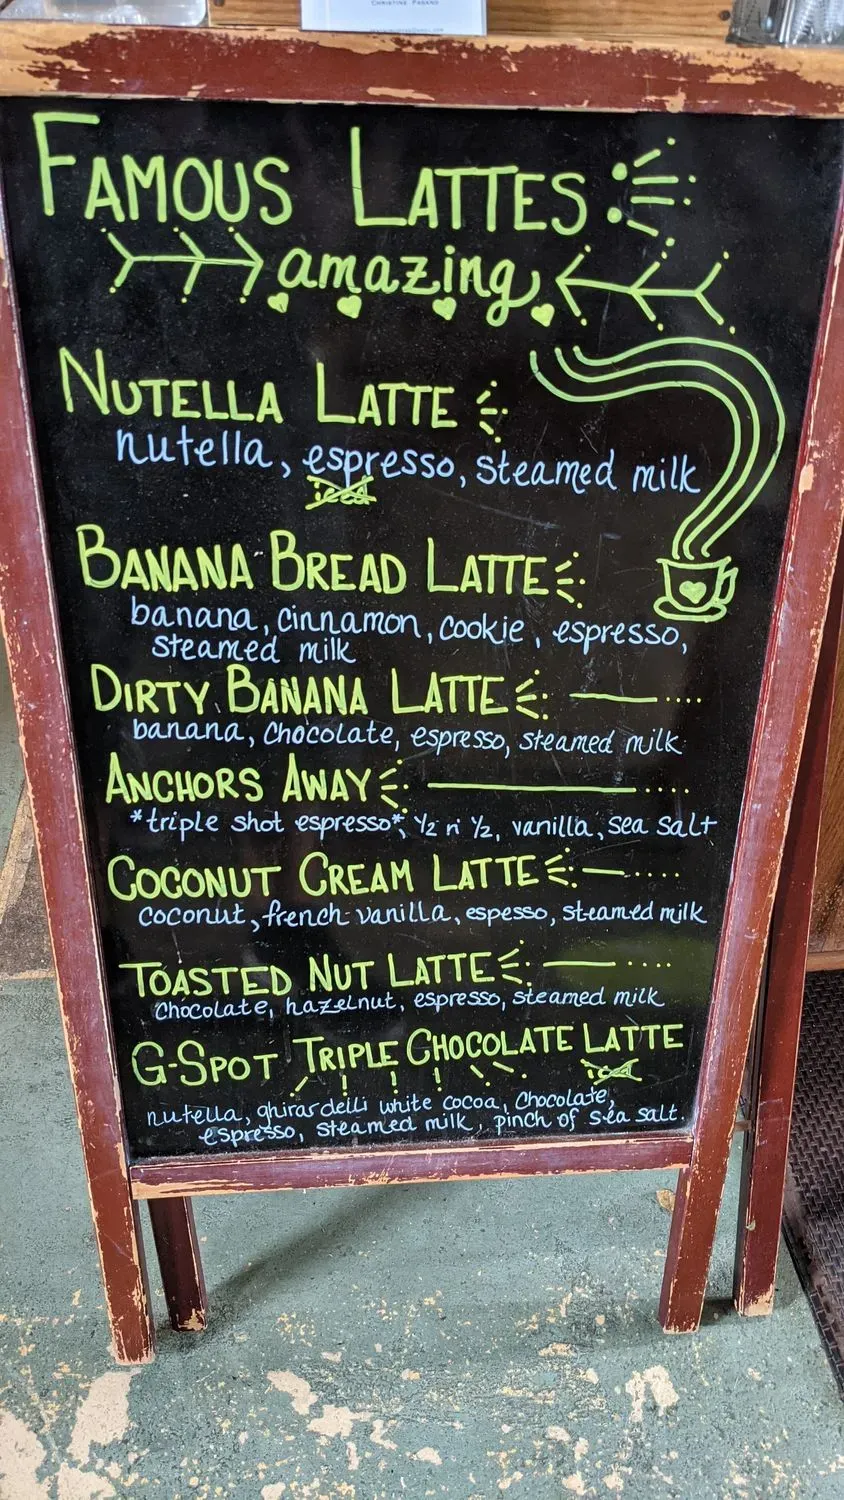 CHRISTINE PAGANO
FAMOUS LATTES
amazing
NUTELLA LATTE
nutella, espresso, steamed milk
iced
BANANA BREAD LATTE
banana, cinnamon, cookie, espresso,
steamed milk
DIRTY BANANA LATTE
banana, chocolate, espresso, steamed milk
ANCHORS AWAY
*triple shot espresso*, ½ n' ½, vanilla, sea salt
COCONUT CREAM LATTE
coconut, french vanilla, espesso, steamed milk
TOASTED NUT LATTE
chocolate, hazelnut, espresso, steamed milk
G-SPOT TRIPLE CHOCOLATE LATTE
iced
nutella, ghirardelli white cocoa, chocolate,
espresso, steamed milk, pinch of sea salt.